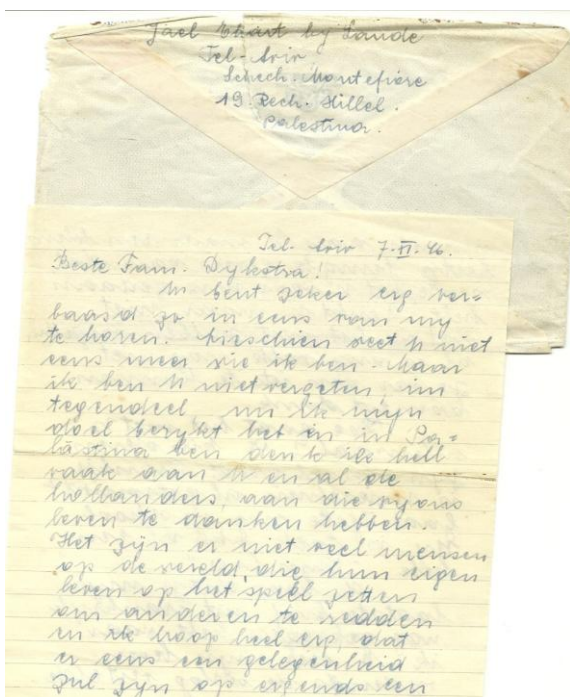 Jael Ehart by Lande
Tel-Aviv
Schech. Montefiore
19. Rech. Hillel.
Palestina.
Tel-Aviv 7.II.46.
Beste Fam. Dykstra!
U bent zeker erg ver=
baasd zo in eens van my
te horen. Misschien weet U niet
eens meer wie ik ben. Maar
ik ben U niet vergeten, im
tegendeel, nu ik mijn
doel berykt heb en in Pa=
lästina ben denk ik heel
vaak aan U en al de
hollanders, aan die wy ons
leven te danken hebben.
Het zijn er niet veel mensen
op de wereld, die hun eigen
leven op het speel zetten
om anderen te redden
en ik hoop heel erg, dat
er eens een gelegenheid
zul zijn op ergends een